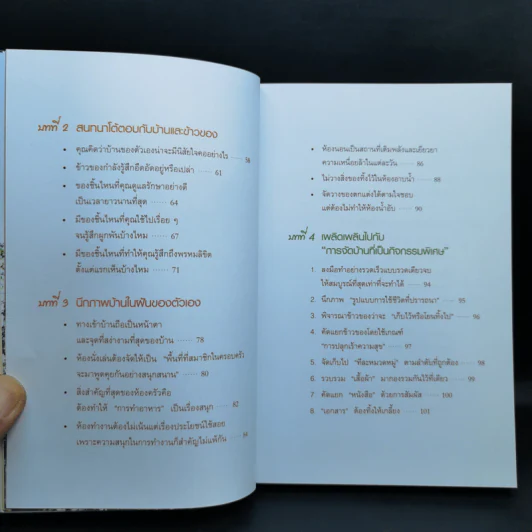 บทที่ 2 สนทนาโต้ตอบกับบ้านและข้าวของ
• คุณคิดว่าบ้านของตัวเองน่าจะมีนิสัยใจคออย่างไร ...... 58
• ข้าวของกำลังรู้สึกอึดอัดอยู่หรือเปล่า ...... 61
• ของชิ้นไหนที่คุณดูแลรักษาอย่างดี
เป็นเวลายาวนานที่สุด ...... 64
• มีของชิ้นไหนที่คุณใช้ไปเรื่อย ๆ
จนรู้สึกผูกพันบ้างไหม ...... 67
• มีของชิ้นไหนที่ทำให้คุณรู้สึกถึงพรหมลิขิต
ตั้งแต่แรกเห็นบ้างไหม ...... 71
บทที่ 3 นึกภาพบ้านในฝันของตัวเอง
• ทางเข้าบ้านถือเป็นหน้าตา
และจุดที่สง่างามที่สุดของบ้าน ...... 78
• ห้องนั่งเล่นต้องจัดให้เป็น "พื้นที่ที่สมาชิกในครอบครัว
จะมาพูดคุยกันอย่างสนุกสนาน" ...... 80
• สิ่งสำคัญที่สุดของห้องครัวคือ
ต้องทำให้ "การทำอาหาร" เป็นเรื่องสนุก ...... 82
• ห้องทำงานต้องไม่เน้นแต่เรื่องประโยชน์ใช้สอย
เพราะความสนุกในการทำงานก็สำคัญไม่แพ้กัน ...... 84
• ห้องนอนเป็นสถานที่เติมพลังและเยียวยา
ความเหนื่อยล้าในแต่ละวัน ...... 86
• ไม่วางสิ่งของทิ้งไว้ในห้องอาบน้ำ ...... 88
• จัดวางของตกแต่งได้ตามใจชอบ
แต่ต้องไม่ทำให้ห้องน้ำอับ ...... 90
บทที่ 4 เพลิดเพลินไปกับ
"การจัดบ้านที่เป็นกิจกรรมพิเศษ"
1. ลงมือทำอย่างรวดเร็วแบบรวดเดียวจบ
ให้สมบูรณ์ที่สุดเท่าที่จะทำได้ ...... 94
2. นึกภาพ "รูปแบบการใช้ชีวิตที่ปรารถนา" ...... 95
3. พิจารณาข้าวของว่าจะ "เก็บไว้หรือโยนทิ้งไป" ...... 96
4. คัดแยกข้าวของโดยใช้เกณฑ์
"การปลุกเร้าความสุข" ...... 97
5. จัดเก็บไป "ทีละหมวดหมู่" ตามลำดับที่ถูกต้อง ...... 98
6. รวบรวม "เสื้อผ้า" มากองรวมกันไว้ที่เดียว ...... 99
7. คัดแยก "หนังสือ" ด้วยการสัมผัส ...... 100
8. "เอกสาร" ต้องทิ้งให้เกลี้ยง ...... 101